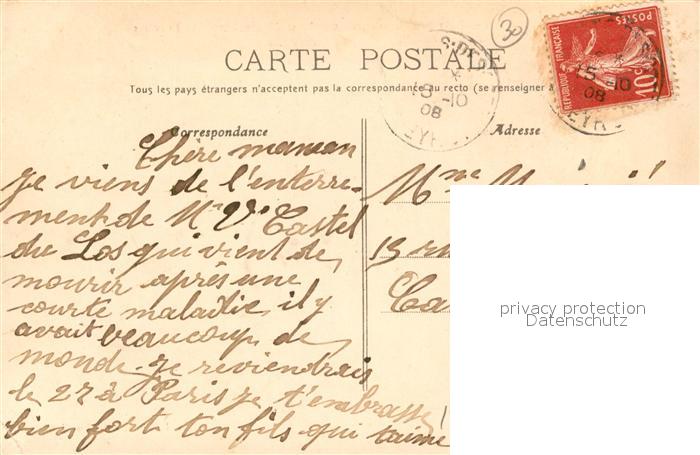 30
CARTE POSTALE
Tous les pays étrangers n'acceptent pas la correspondance au recto (se renseigner à
Correspondance
Adresse
POSTES
REPUBLIQUE FRANÇAISE
10c
-10
08
5-10
08
EYR
Chère maman
je viens de l'enterre-
ment de Mr Vr Castel
du Los qui vient de
mourir après une
courte maladie, il y
avait beaucoup de
monde. je reviendrais
le 27 à Paris je t'embrasse
bien fort ton fils qui t'aime
Mme
13 ru
Ca
privacy protection
Datenschutz